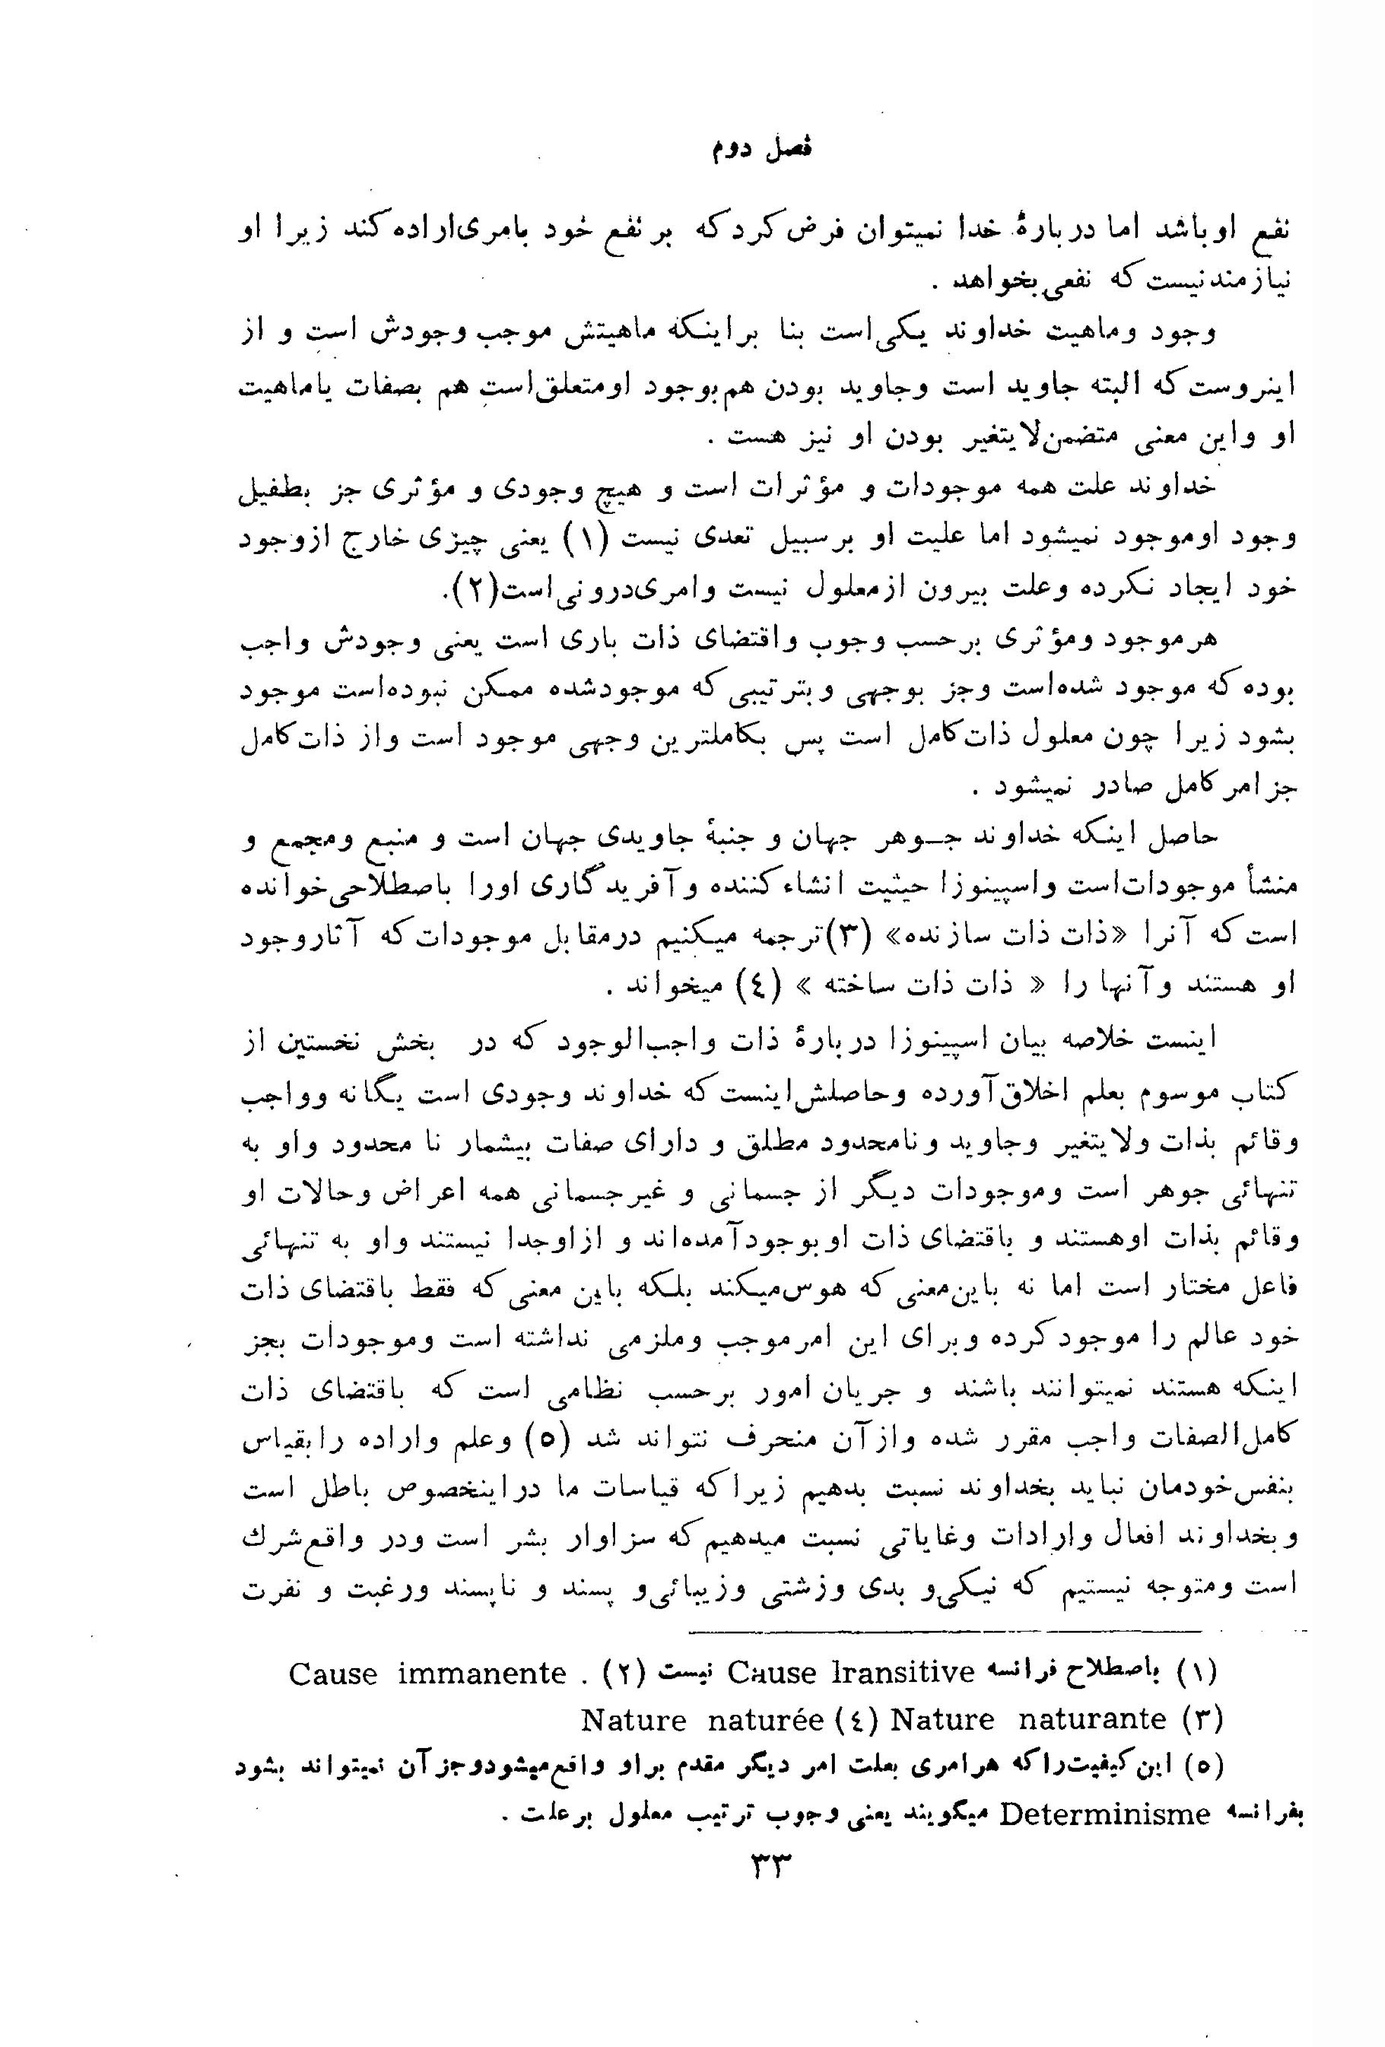 فصل دوم
نفع او باشد اما دربارهٔ خدا نمیتوان فرض کرد که بر نفع خود بامری اراده کند زیرا او
نیازمند نیست که نفعی بخواهد .
وجود وماهیت خداوند یکی است بنا براینکه ماهیتش موجب وجودش است و از
اینروست که البته جاوید است وجاوید بودن هم بوجود او متعلق است هم بصفات یا ماهیت
او واین معنی متضمن لایتغیر بودن او نیز هست .
خداوند علت همه موجودات و مؤثرات است و هیچ وجودی و مؤثری جز بطفیل
وجود او موجود نمیشود اما علیت او بر سبیل تعدی نیست (۱) یعنی چیزی خارج از وجود
خود ایجاد نکرده وعلت بیرون از معلول نیست وامری درونی است(۲).
هر موجود ومؤثری برحسب وجوب واقتضای ذات باری است یعنی وجودش واجب
بوده که موجود شده است وجز بوجهی و بترتیبی که موجود شده ممکن نبوده است موجود
بشود زیرا چون معلول ذات کامل است پس بکاملترین وجهی موجود است واز ذات کامل
جز امر کامل صادر نمیشود .
حاصل اینکه خداوند جـوهر جهان و جنبهٔ جاویدی جهان است و منبع ومجمع و
منشأ موجودات است واسپینوزا حیثیت انشاء کننده وآفریدگاری اورا باصطلاحی خوانده
است که آنرا «ذات ذات سازنده» (۳) ترجمه میکنیم درمقابل موجودات که آثار وجود
او هستند وآنها را « ذات ذات ساخته » (٤) میخواند .
اینست خلاصه بیان اسپینوزا دربارهٔ ذات واجب‌الوجود که در بخش نخستین از
کتاب موسوم بعلم اخلاق آورده وحاصلش اینست که خداوند وجودی است یگانه وواجب
وقائم بذات ولایتغیر وجاوید ونامحدود مطلق و دارای صفات بیشمار نا محدود واو به
تنهائی جوهر است وموجودات دیگر از جسمانی و غیرجسمانی همه اعراض وحالات او
وقائم بذات او هستند و باقتضای ذات او بوجود آمده‌اند و ازاو جدا نیستند واو به تنهائی
فاعل مختار است اما نه باین معنی که هوس میکند بلکه باین معنی که فقط باقتضای ذات
خود عالم را موجود کرده وبرای این امر موجب وملزمی نداشته است وموجودات بجز
اینکه هستند نمیتوانند باشند و جریان امور برحسب نظامی است که باقتضای ذات
کامل‌الصفات واجب مقرر شده وازآن منحرف نتواند شد (۵) وعلم واراده را بقیاس
بنفس خودمان نباید بخداوند نسبت بدهیم زیرا که قیاسات ما دراینخصوص باطل است
وبخداوند افعال وارادات وغایاتی نسبت میدهیم که سزاوار بشر است ودر واقع شرك
است ومتوجه نیستیم که نیکی و بدی وزشتی وزیبائی و پسند و ناپسند ورغبت و نفرت
(۱) باصطلاح فرانسه Cause lransitive نیست (۲) . Cause immanente
(۳) Nature naturante (٤) Nature naturée
(۵) این کیفیت را که هر امری بعلت امر دیگر مقدم براو واقع میشود وجز آن نمیتواند بشود
بفرانسه Determinisme میگویند یعنی وجوب ترتیب معلول برعلت .
۳۳